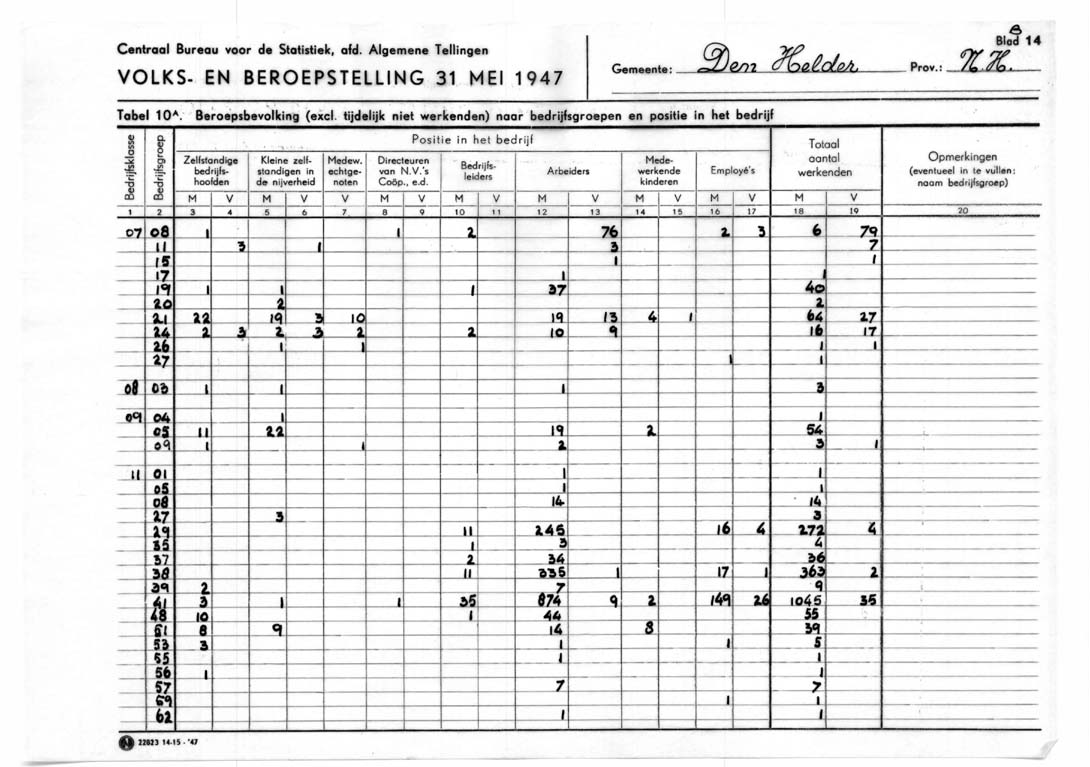 8
Blad 14
Centraal Bureau voor de Statistiek, afd. Algemene Tellingen
VOLKS- EN BEROEPSTELLING 31 MEI 1947
Gemeente: Den Helder Prov.: N.H.
Tabel 10A. Beroepsbevolking (excl. tijdelijk niet werkenden) naar bedrijfsgroepen en positie in het bedrijf
Bedrijfsklasse Bedrijfsgroep Positie in het bedrijf Totaal aantal werkenden Opmerkingen (eventueel in te vullen: naam bedrijfsgroep)
Zelfstandige bedrijfshoofden Kleine zelfstandigen in de nijverheid Medew. echtgenoten Directeuren van N.V.'s Coöp., e.d. Bedrijfsleiders Arbeiders Medewerkende kinderen Employé's
M V M V V M V M V M V M V M V M V
1 2 3 4 5 6 7 8 9 10 11 12 13 14 15 16 17 18 19 20
07 08 1 1 2 76 2 3 6 79
11 3 1 3 7
15 1 1
17 1 1
19 1 1 1 37 40
20 2 2
21 22 19 3 10 19 13 4 1 64 27
24 2 3 2 3 2 2 10 9 16 17
26 1 1 1 1
27 1 1
08 03 1 1 1 3
09 04 1 1
05 11 22 19 2 54
09 1 1 2 3 1
11 01 1 1
05 1 1
08 14 14
27 3 3
29 11 245 16 4 272 4
35 1 3 4
37 2 34 36
38 11 335 1 17 1 363 2
39 2 7 9
41 3 1 1 35 874 9 2 149 26 1045 35
48 10 1 44 55
51 8 9 14 8 39
53 3 1 1 5
55 1 1
56 1 1
57 7 7
59 1 1
62 1 1
22623 14-15 - '47